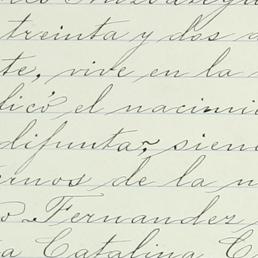 treinta y dos a
te, vive en la
ficó el nacimi
difunta; siend
ernos de la n
o Fernandez
a Catalina C